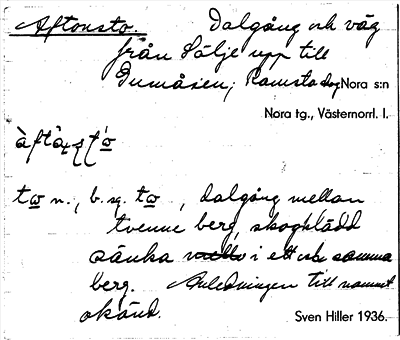 Aftonsto. Dalgång och väg
från Sälje upp till
Dumåsen; Ramsta by Nora s:n
Nora tg., Västernorrl. l.
to n., b. sg. to , dalgång mellan
tvenne berg, skogklädd
sänka i ett och samma
berg. Anledningen till namnet
okänd. Sven Hiller 1936.